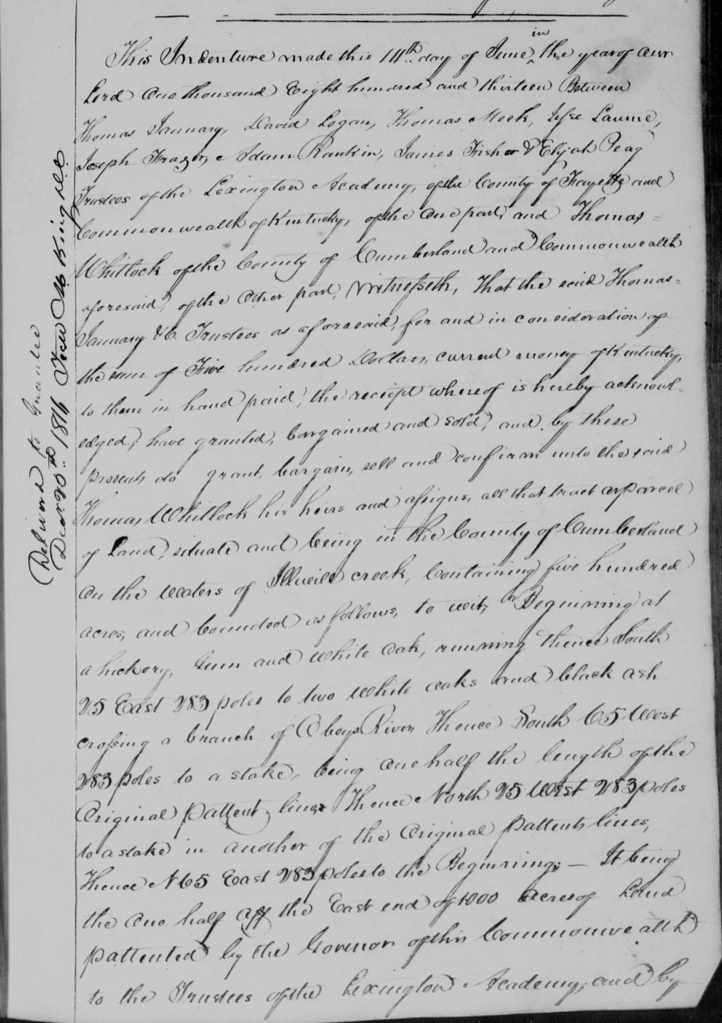 This Indenture made this 14th day of June in the year of our
Lord One thousand Eight hundred and thirteen Between
Thomas January, David Logan, Thomas Meek,
Joseph Frazer, Adam Rankin, James Fisher & Elijah
Trustees of the Lexington Academy, of the County of Fayette and
Commonwealth of Kentucky, of the one part, and Thomas
Whitlock of the County of Cumberland and Commonwealth
aforesaid, of the other part, Witnesseth, That the said Thomas
January &C Trustees as aforesaid, for and in consideration of
the sum of Five hundred Dollars, current money of Kentucky,
to them in hand paid, the receipt whereof is hereby acknowl-
edged, have granted, bargained and sold, and by these
presents do grant, bargain, sell and confirm unto the said
Thomas Whitlock his heirs and assigns, all that tract or parcel
of Land, situate and being in the County of Cumberland
On the waters of Illwill creek, Containing five hundred
acres, and bounded as follows, to wit, Beginning at
a hickory, Gum and white oak, running thence South
25 East 283 poles to two white oaks and black ash
crossing a branch of Obeys River, Thence South 65 West
283 poles to a stake, being one half the length of the
Original pattent line, Thence North 25 West 283 poles
to a stake in another of the Original pattents lines,
Thence N 65 East 283 poles to the Beginning — It being
the one half off the East end of 1000 acres of Land
pattented by the Governor of this Commonwealth
to the Trustees of the Lexington Academy, and by
Delivered to Grantee
Decr 20th 1814